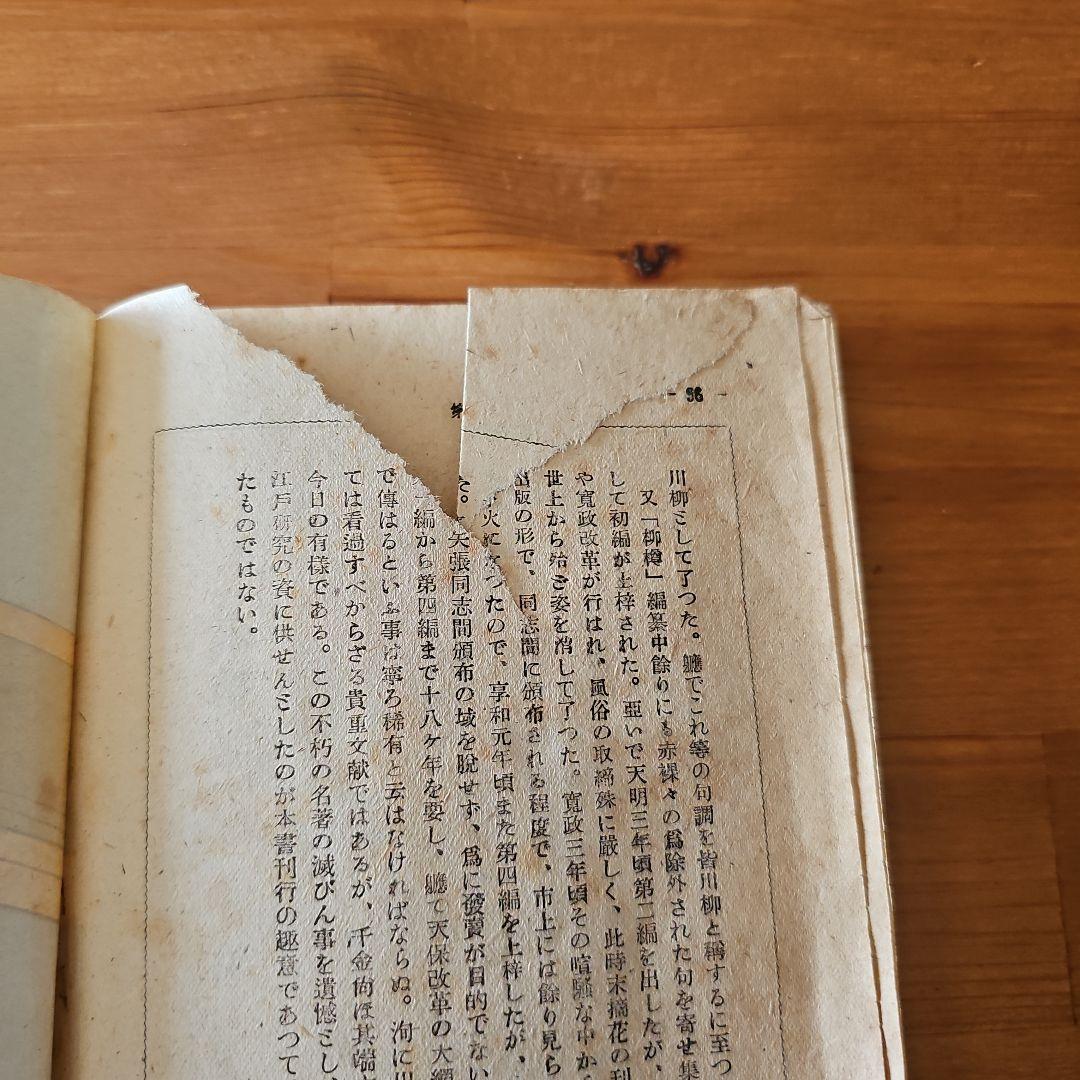 - 96 -
川柳として了つた。軈でこれ等の句調を皆川柳と稱するに至つ
又「柳樽」編纂中餘りにも赤裸々の爲除外された句を寄せ集
して初編が上梓された。亞いで天明三年頃第二編を出したが、
や寛政改革が行はれ、風俗の取締殊に嚴しく、此時末摘花の刊
世上から殆ど姿を消して了つた。寛政三年頃その喧騷な中か
出版の形で、同志間に頒布される程度で、市上には餘り見ら
火になつたので、享和元年頃また第四編を上梓したが、
た。矢張同志間頒布の域を脱せず、爲に發賣が目的でない
編から第四編まで十八ケ年を要し、軈て天保改革の大
で傳はるといふ事は寧ろ稀有と云はなければならぬ。洵に
ては看過すべからざる貴重文献ではあるが、千金尚ほ其
今日の有樣である。この不朽の名著の滅びん事を遺憾とし、
江戸研究の資に供せんとしたのが本書刊行の趣意であつて
たものではない。